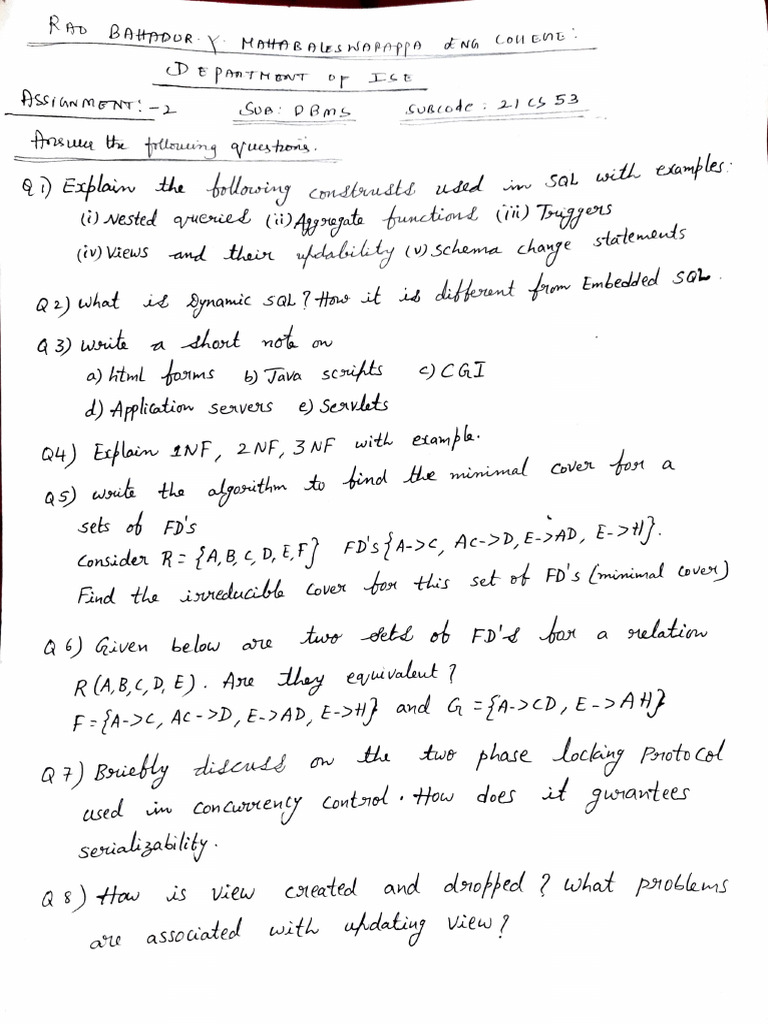 RAO BAHADUR. Y. MAHABALESWARAPPA ENG COLLEGE:
DEPARTMENT OF ISE
ASSIGNMENT:-2 SUB: DBMS SUBCODE: 21CS53
Answer the following questions.
Q1) Explain the following constructs used in SQL with examples:
(i) Nested queries (ii) Aggregate functions (iii) Triggers
(iv) Views and their updability (v) Schema change statements
Q2) What is Dynamic SQL? How it is different from Embedded SQL.
Q3) Write a short note on
a) html forms b) Java scripts c) CGI
d) Application servers e) Servlets
Q4) Explain 1NF, 2NF, 3NF with example.
Q5) write the algorithm to find the minimal cover for a
sets of FD's
Consider R = {A,B,C,D,E,F} FD's{A->C, AC->D, E->AD, E->H}.
Find the irreducible cover for this set of FD's (minimal cover)
Q6) Given below are two sets of FD's for a relation
R(A,B,C,D,E). Are they equivalent?
F={A->C, AC->D, E->AD, E->H} and G={A->CD, E->AH}
Q7) Briefly discuss on the two phase locking Protocol
used in concurrency control. How does it gurantees
serializability.
Q8) How is view created and dropped? What problems
are associated with updating view?